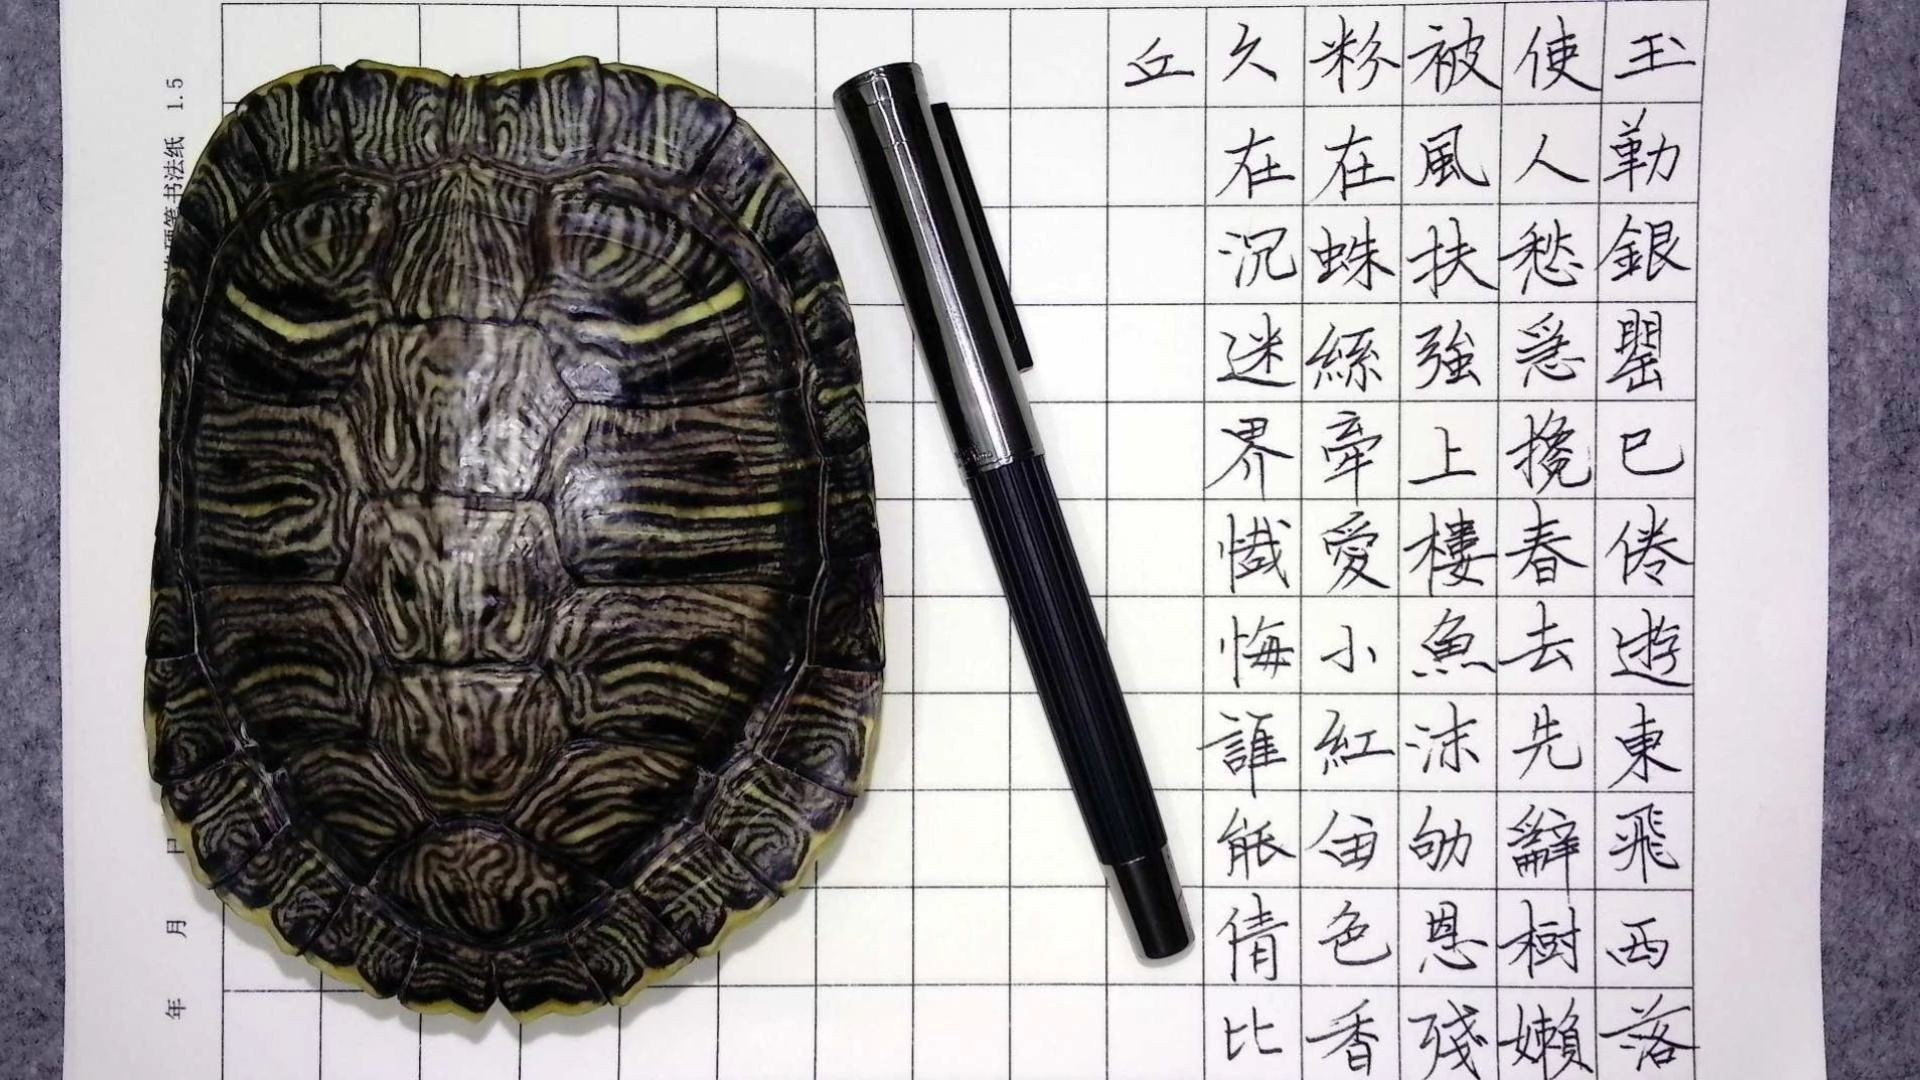 玉勒銀罌已倦遊東飛西落
使人愁急攙春去先辭樹嬾
被風扶強上樓魚沫劬恩殘
粉在蛛絲牽愛小紅留色香
久在沉迷界懺悔誰能倩比
丘
年 月 日 硬笔书法纸 1.5